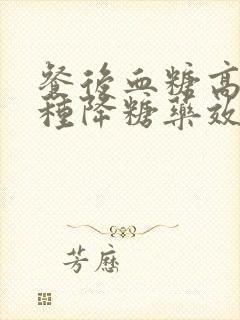 餐後血糖高
種降糖藥效
芳歷